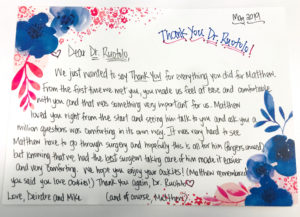 May 2019
Thank You Dr. Ruotolo!
Dear Dr. Ruotolo,
We just wanted to say Thank You for everything you did for Matthew.
From the first time we met you, you made us feel at ease and comfortable
with you (and that was something very important for us. Matthew
loved you right from the start and seeing him talk to you and ask you a
million questions was comforting in its own way. It was very hard to see
Matthew have to go through surgery and hopefully this is it for him (fingers crossed)
but knowing that we had the best surgeon taking care of him made it easier
and very comforting. We hope you enjoy your cookies! (Matthew remembered
you said you love cookies!) Thank you again, Dr. Ruotolo
Love, Deirdre and Mike (and of course, Matthew)